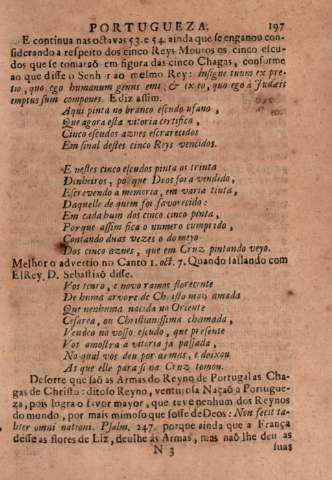 PORTUGUEZA. 197
E continua nas octavas 53. e 54. ainda que se enganou con-
siderando a respeito dos cinco Reys Mouros os cinco escu-
dos que se tomaraõ em figura das cinco Chagas, conforme
ao que disse o Senhor ao mesmo Rey: Insigne tuum ex pre-
tio, quo ego humanum genus emi, & ex eo, quo ego à Judæis
emptus sum compones. E diz assim.
Aqui pinta no branco escudo ufano,
Que agora esta vitoria certifica,
Cinco escudos azues escrarecidos
Em sinal destes cinco Reys vencidos.
E nestes cinco escudos pinta os trinta
Dinheiros, porque Deos fora vendido,
Escrevendo a memoria, em varia tinta,
Daquelle de quem foi favorecido:
Em cada hum dos cinco cinco pinta,
Porque assim fica o numero cumprido,
Contando duas vezes o do meyo
Dos cinco azues, que em Cruz pintando veyo.
Melhor o advertio no Canto 1. oct. 7. Quando fallando com
ElRey D. Sebastiaõ disse.
Vos tenro, e novo ramo florecente
De huma arvore de Christo mais amada
Que nenhuma nacida no Oriente
Cesarea, ou Christianissima chamada,
Vendeo no vosso escudo, que presente
Vos amostra a vitoria ja passada,
No qual vos deu por armas, e deixou
As que elle para si na Cruz tomou.
Desorte que saõ as Armas do Reyno de Portugal as Cha-
gas de Christo: ditoso Reyno, venturosa Naçaõ a Portugue-
za, pois logra o favor mayor, que teve nenhum dos Reynos
do mundo, por mais mimoso que fosse de Deos: Non fecit ta-
liter omni nationi. Psalm. 247. porque ainda que a França
desse as flores de Liz, deulhe as Armas, mas naõ lhe deu as
N 3 suas